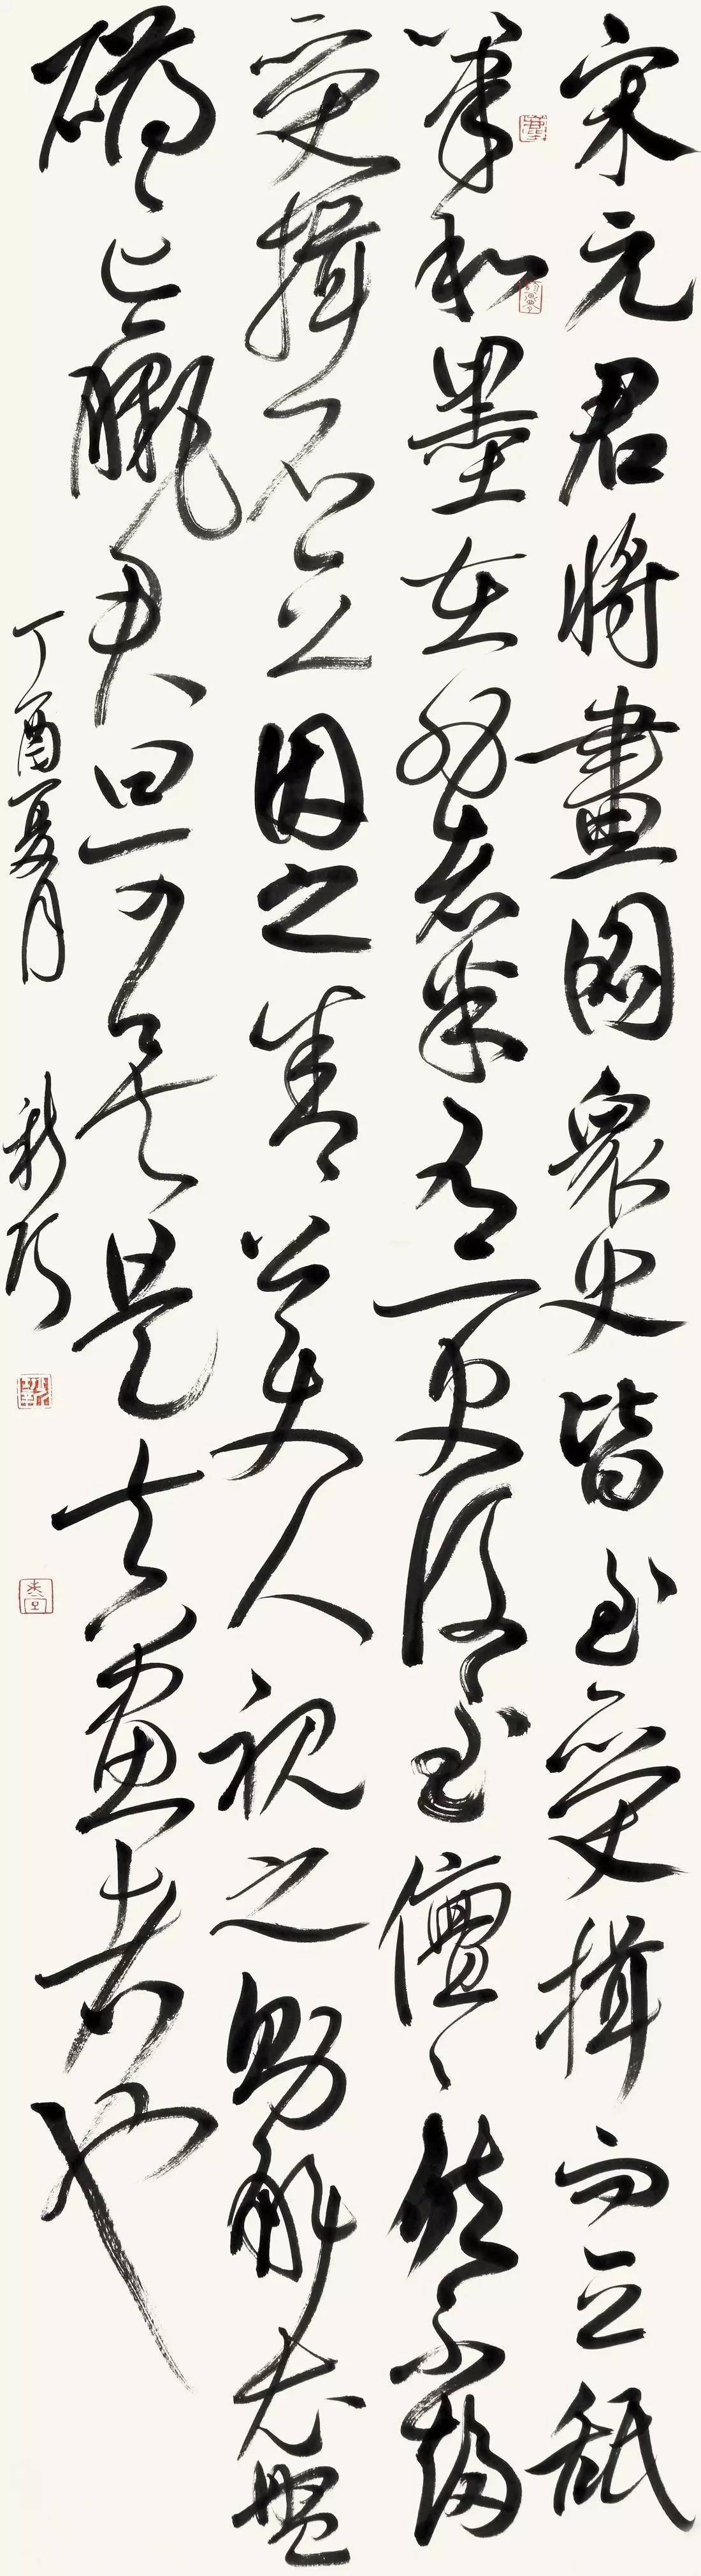 宋元君將畫圖衆史皆至受揖而立舐
筆和墨在外者半有一史後至儃〻然不趨
受揖不立因之舍公使人視之則解衣盤
礴臝君曰可矣是真畫者也
丁酉夏月